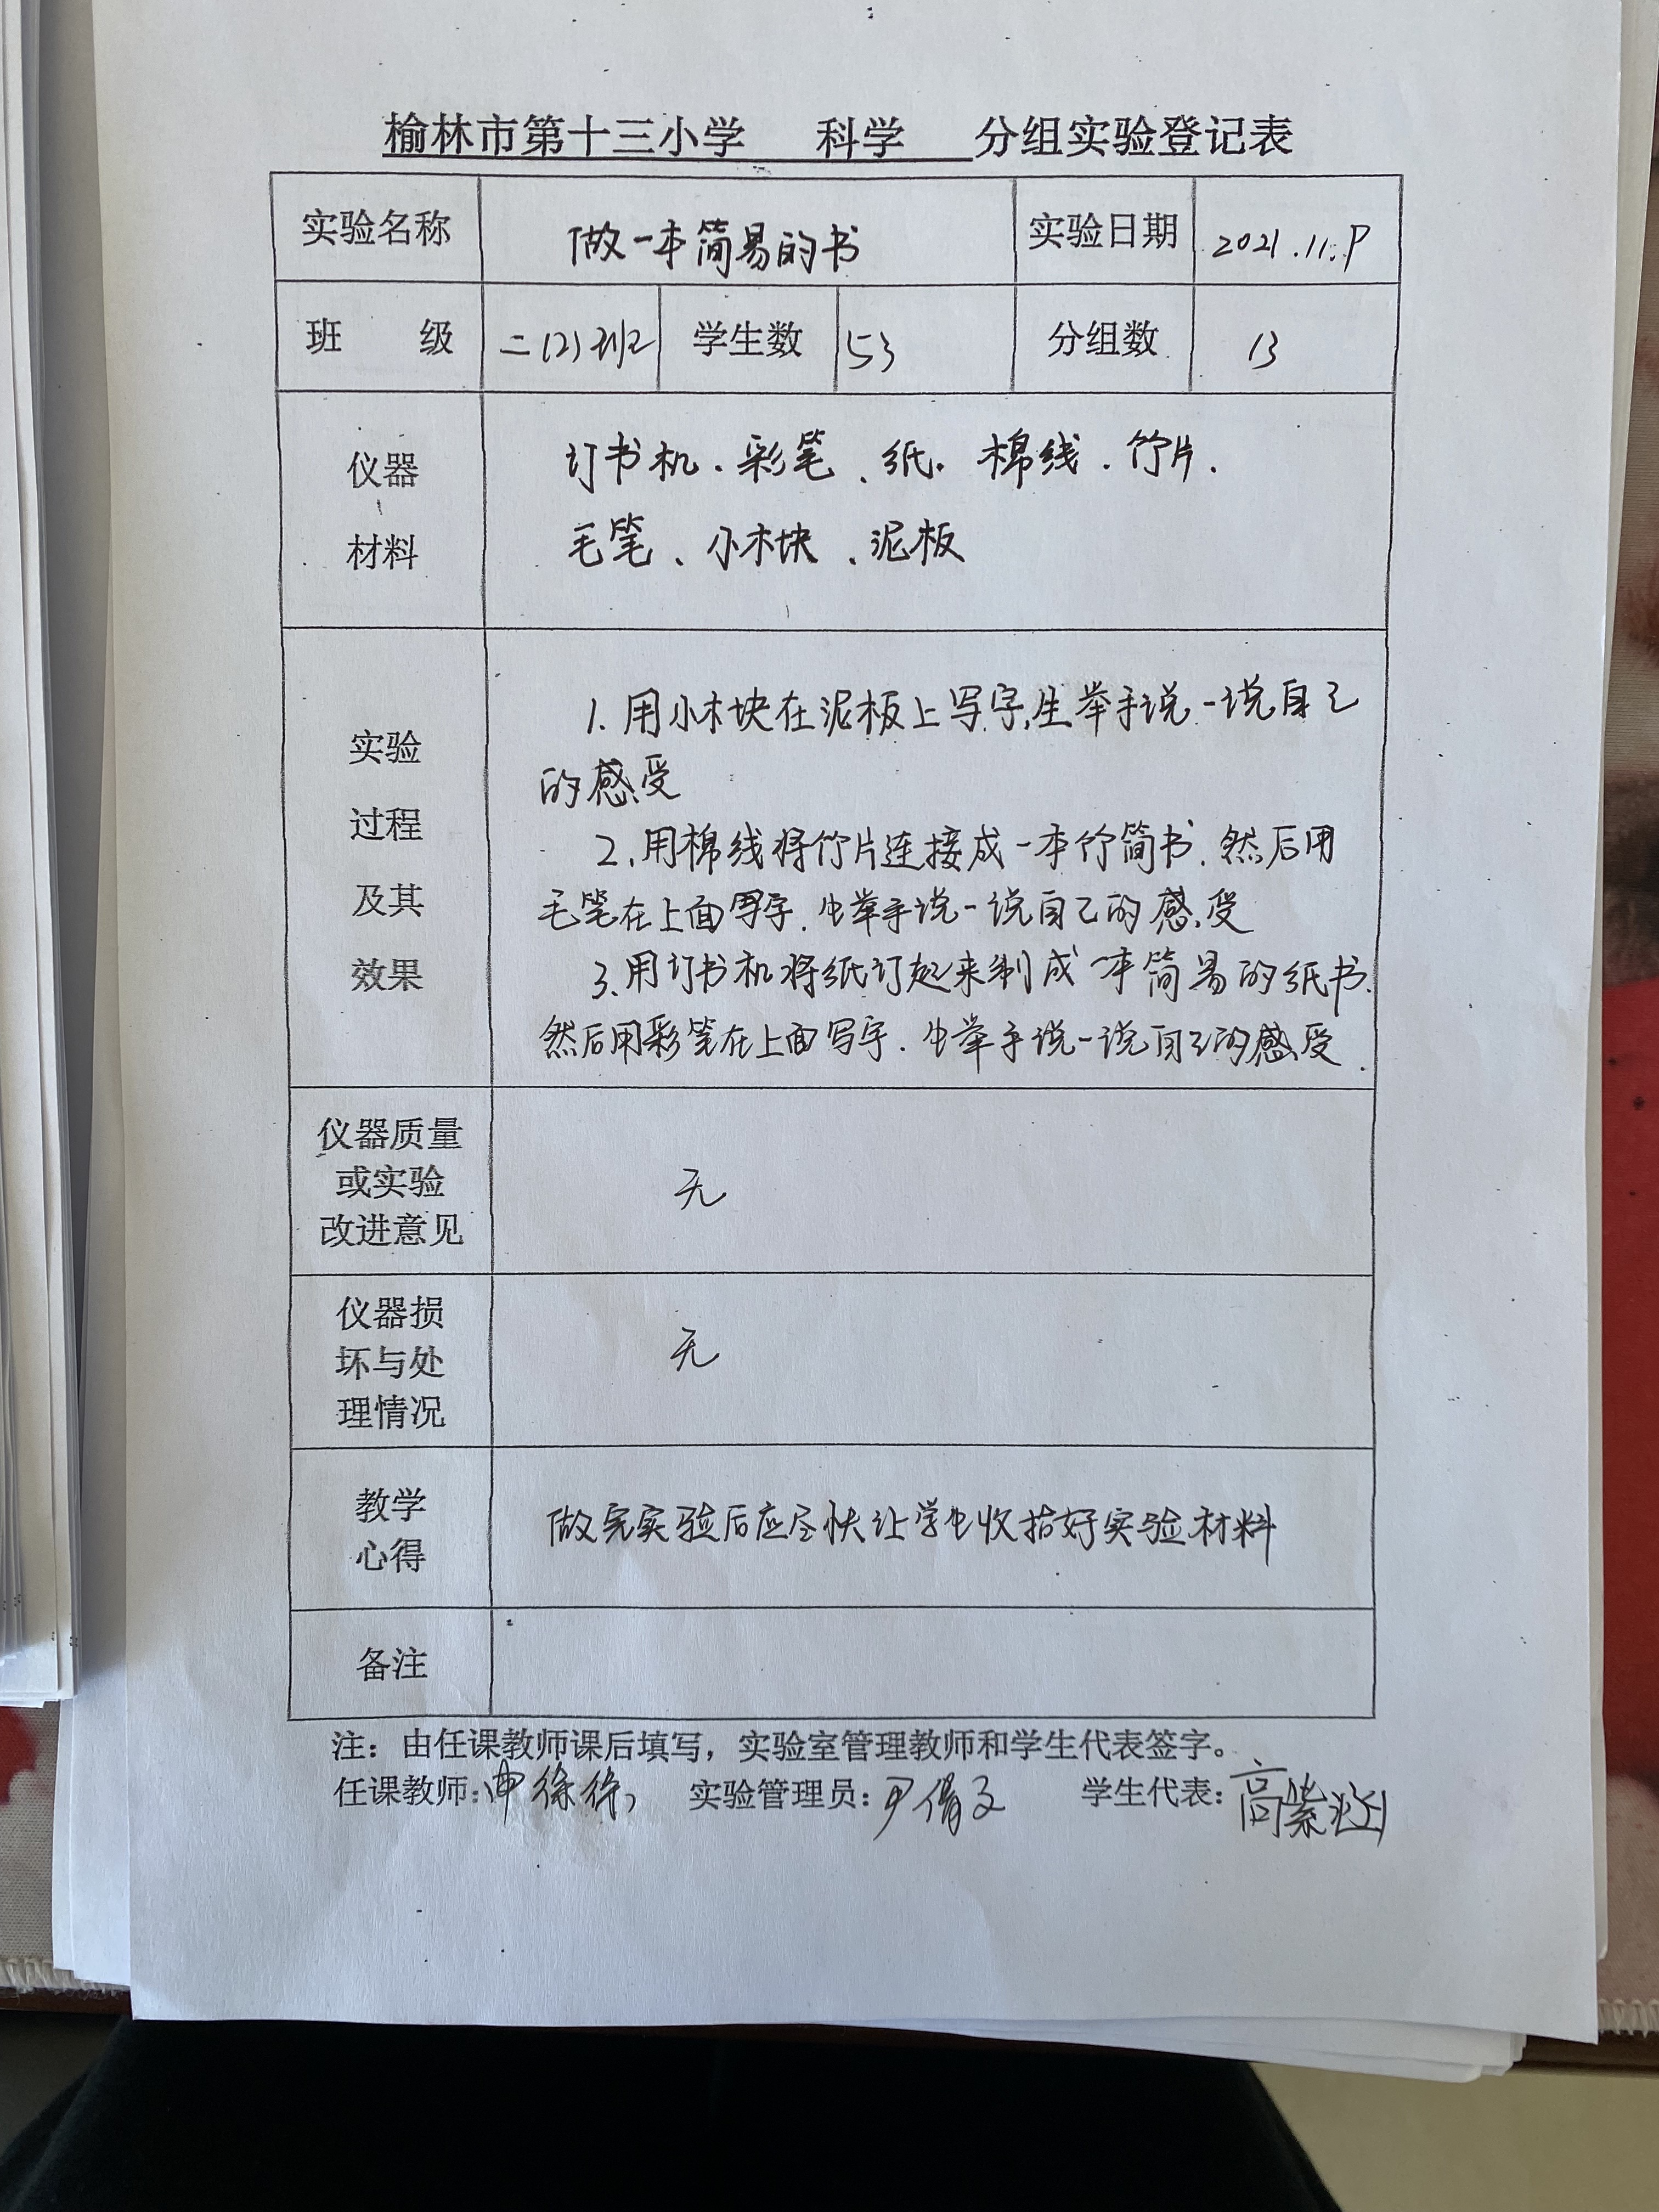 榆林市第十三小学 科学 分组实验登记表
实验名称 做一本简易的书 实验日期 2021.11.9
班 级 二(2)班 学生数 53 分组数 13
仪器
材料
订书机、彩笔、纸、棉线、竹片、
毛笔、小木块、泥板
实验
过程
及其
效果
1.用小木块在泥板上写字,生举手说一说自己
的感受
2.用棉线将竹片连接成一本竹简书.然后用
毛笔在上面写字.生举手说一说自己的感受
3.用订书机将纸订起来制成一本简易的纸书.
然后用彩笔在上面写字.生举手说一说自己的感受.
仪器质量
或实验
改进意见
无
仪器损
坏与处
理情况
无
教学
心得
做完实验后应尽快让学生收拾好实验材料
备注
注：由任课教师课后填写，实验室管理教师和学生代表签字。
任课教师: 申徐徐 实验管理员: 尹倩文 学生代表: 高紫